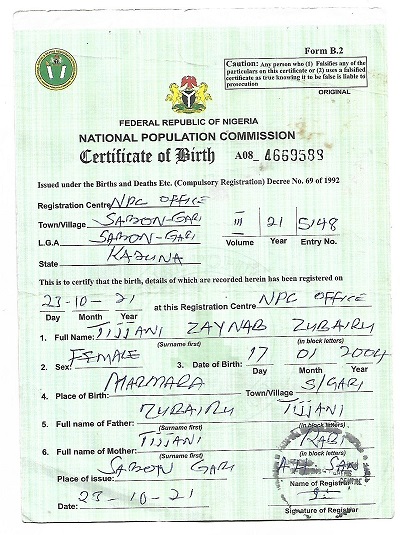 Form B.2
Caution: Any person who (1) Falsifies any of the
particulars on this certificate or (2) uses a falsified
certificate as true knowing it to be false is liable to
prosecution
ORIGINAL
FEDERAL REPUBLIC OF NIGERIA
NATIONAL POPULATION COMMISSION
Certificate of Birth A08_ 4669599
Issued under the Births and Deaths Etc. (Compulsory Registration) Decree No. 69 of 1992
Registration Centre NPC OFFICE
Town/Village SABON-GARI
L.G.A SABON-GARI
State KADUNA
III 21 5148
Volume Year Entry No.
This is to certify that the birth, details of which are recorded herein has been registered on
23-10-21 at this Registration Centre NPC OFFICE
Day Month Year
1. Full Name: TIJJANI ZAYNAB ZUBAIRU
(Surname first) (in block letters)
2. Sex: FEMALE 3. Date of Birth: 17 01 2004
Day Month Year
4. Place of Birth: MARMARA Town/Village S/GARI
5. Full name of Father: ZUBAIRU TIJJANI
(Surname first) (in block letters)
6. Full name of Mother: TIJJANI RABI
(Surname first) (in block letters)
Place of issue: SABON GARI
Name of Registrar
Date: 23-10-21
Signature of Registrar